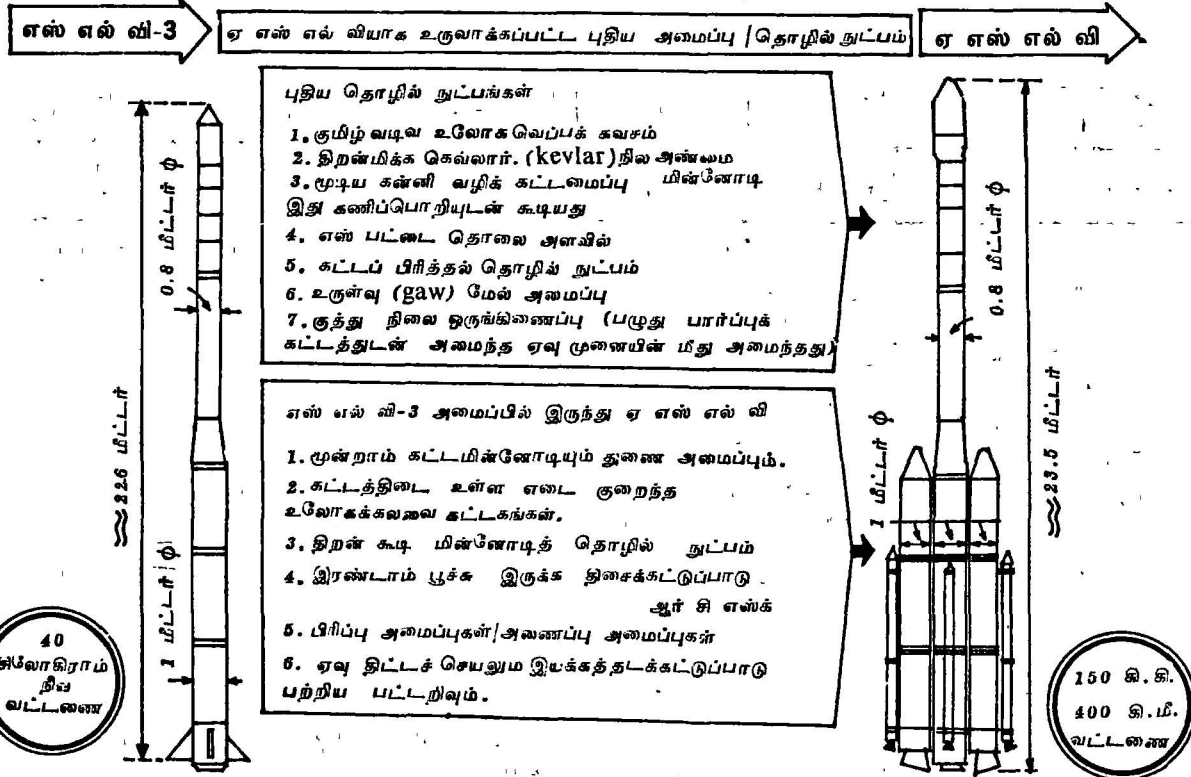 எஸ் எல் வி-3
ஏ எஸ் எல் வியாக உருவாக்கப்பட்ட புதிய அமைப்பு / தொழில் நுட்பம்
ஏ எஸ் எல் வி
புதிய தொழில் நுட்பங்கள்
1. குமிழ் வடிவ உலோக வெப்பக் கவசம்
2. திறன்மிக்க கெவ்லார். (kevlar) நில அண்மை
3. மூடிய கன்னி வழிக் கட்டமைப்பு மின்னோடி
இது கணிப்பொறியுடன் கூடியது
4. எஸ் பட்டை தொலை அளவில்
5. கட்டப் பிரித்தல் தொழில் நுட்பம்
6. உருள்வு (gaw) மேல் அமைப்பு
7. குத்து நிலை ஒருங்கிணைப்பு (பழுது பார்ப்புக்
கட்டத்துடன் அமைந்த ஏவு முனையின் மீது அமைந்தது)
எஸ் எல் வி-3 அமைப்பில் இருந்து ஏ எஸ் எல் வி
1. மூன்றாம் கட்டமின்னோடியும் துணை அமைப்பும்.
2. கட்டத்திடை உள்ள எடை குறைந்த
உலோகக்கலவை கட்டகங்கள்.
3. திறன் கூடி மின்னோடித் தொழில் நுட்பம்
4. இரண்டாம் பூச்சு இருக்க திசைக்கட்டுப்பாடு
ஆர் சி எஸ்க்
5. பிரிப்பு அமைப்புகள்/அணைப்பு அமைப்புகள்
6. ஏவு திட்டச் செயலும இயக்கத்தடக்கட்டுப்பாடு
பற்றிய பட்டறிவும்.
0.8 மீட்டர் ϕ
≈ 226 மீட்டர்
1 மீட்டர் ϕ
40
கிலோகிராம்
நீவ
வட்டணை
0.8 மீட்டர் ϕ
1 மீட்டர் ϕ
≈ 23.5 மீட்டர்
150 கி.கி.
400 கி.மீ.
வட்டணை